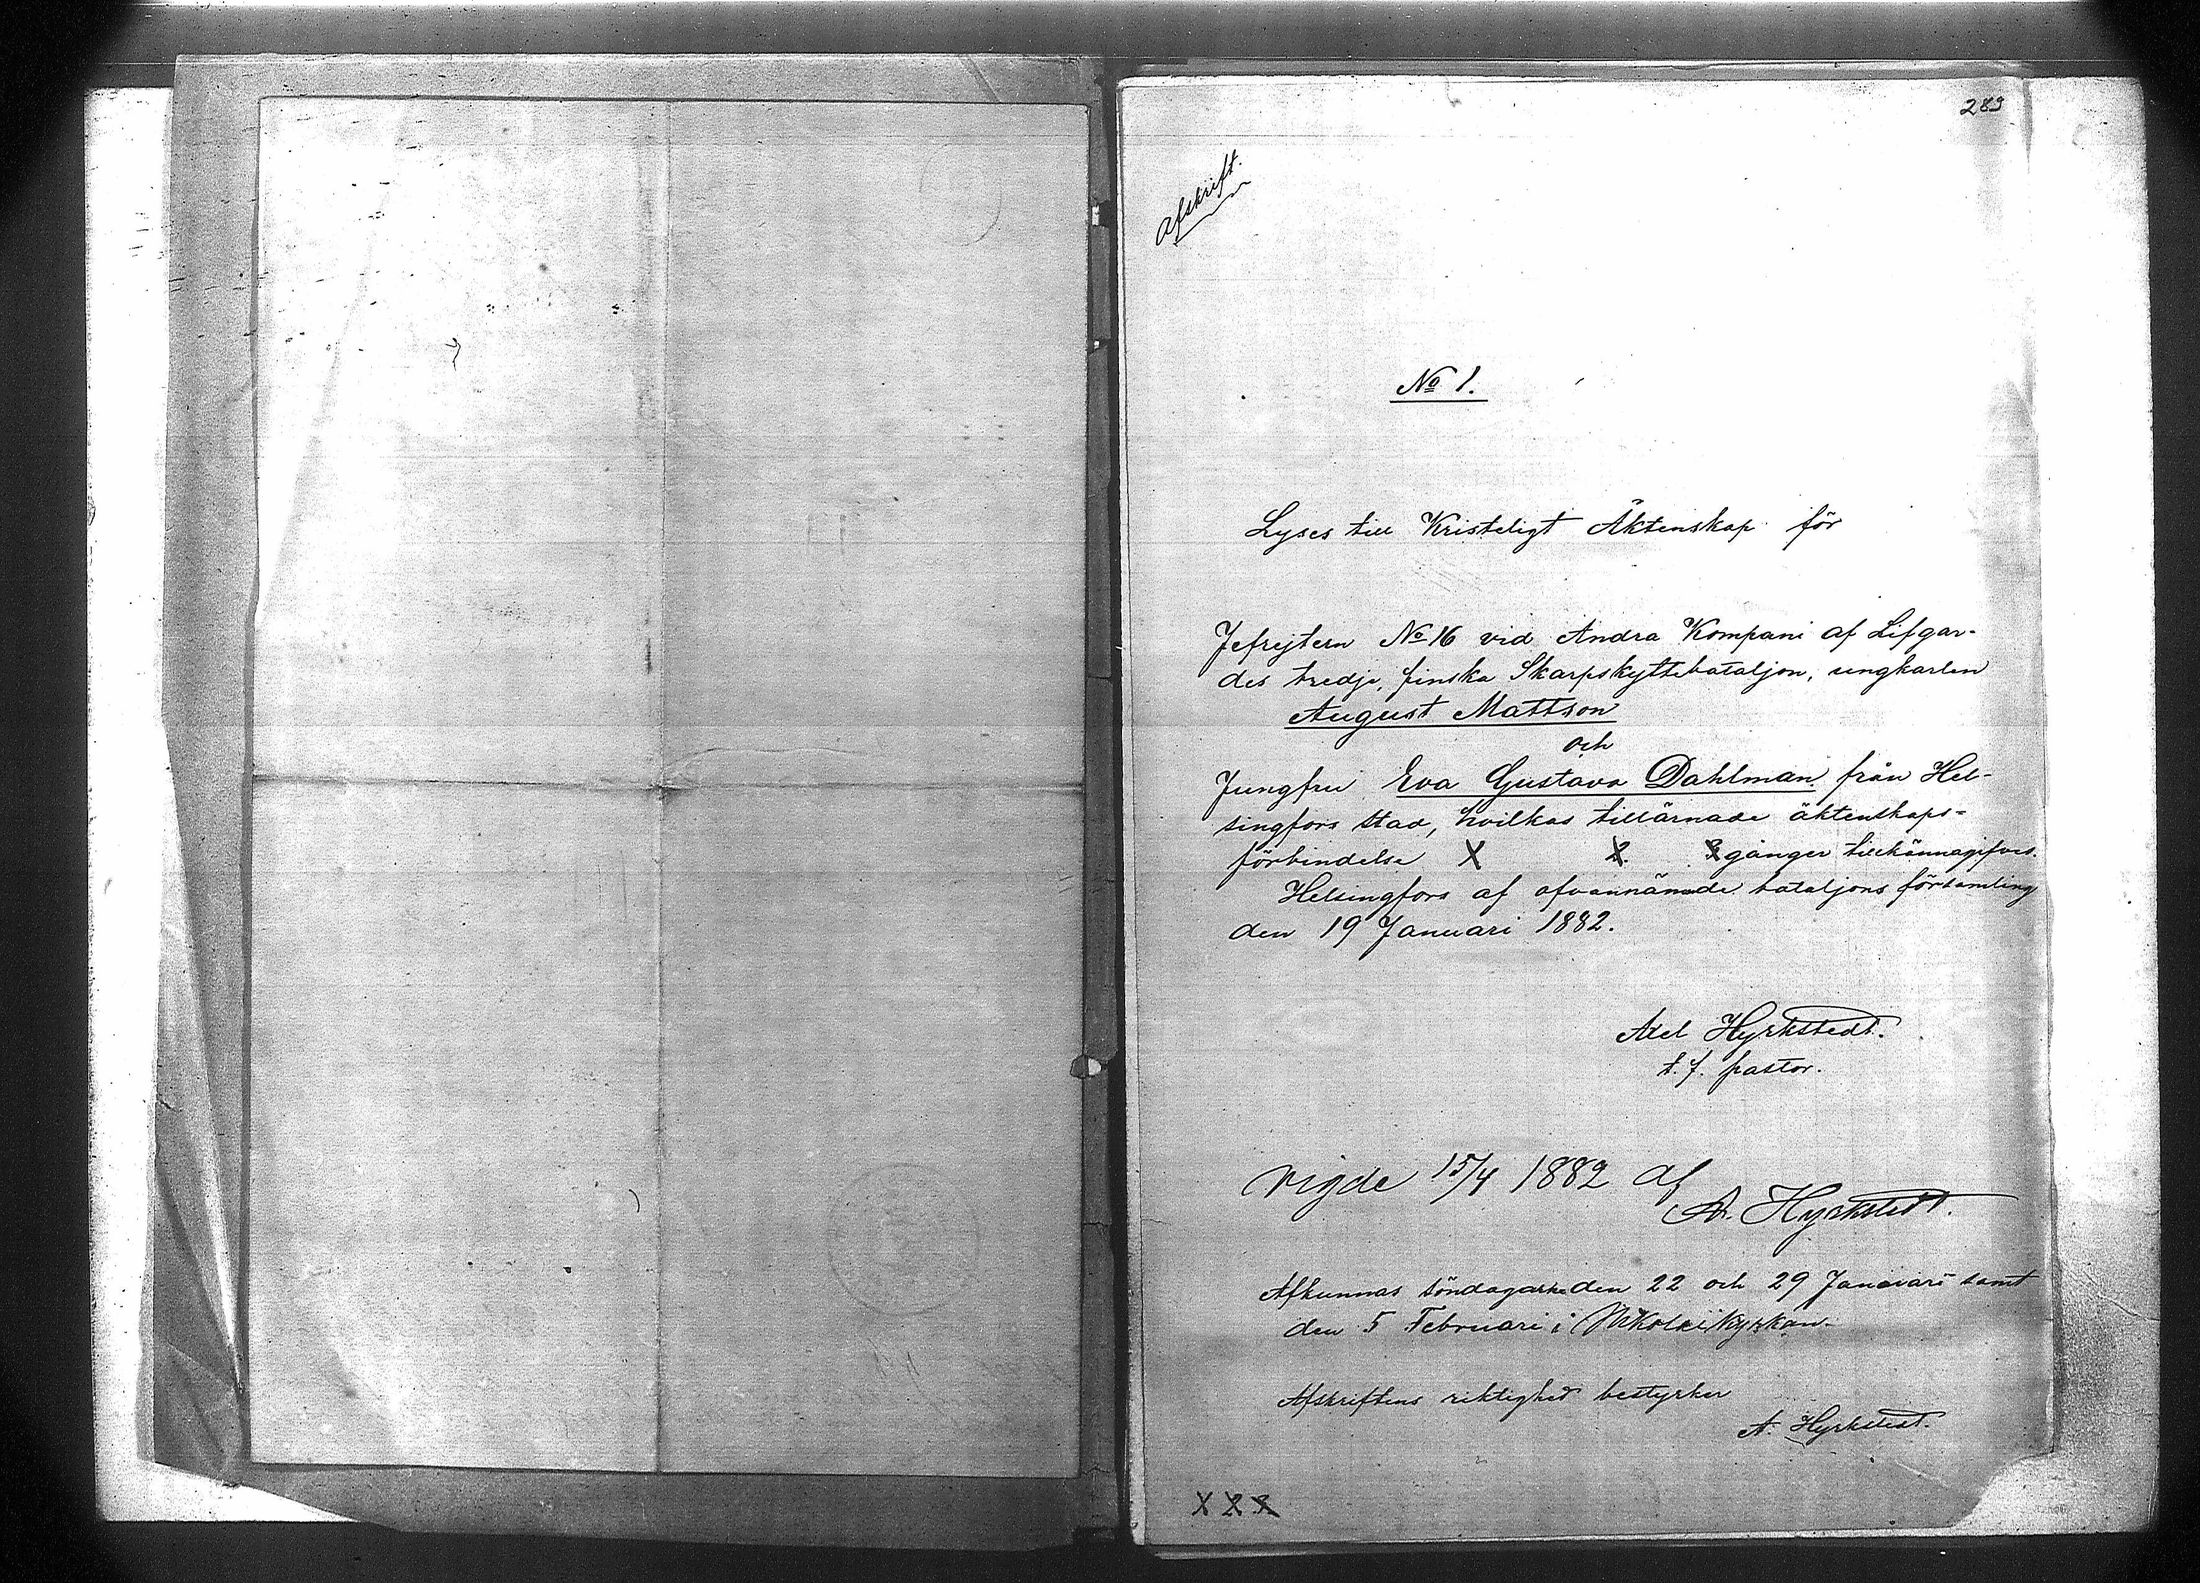 283
Afskrift.
No 1.
Lyses till Kristeligt Äktenskap för
Jefrejtern No 16 vid Andra Kompani af Lifgar-
des tredje, finska Skarpskyttebataljon, ungkarlen
August Mattson
och
Jungfru Eva Gustava Dahlman från Hel-
singfors stad, hvilkas tillärnade äktenskaps-
förbindelse X 2. 3 gånger tillkännagifves.
Helsingfors af ofvannämde bataljons församling
den 19 Januari 1882.
Axel Hyrkstedt.
t. f. pastor.
Vigde 15/4 1882 af
A. Hyrkstedt.
Afkunnas söndagarne den 22 och 29 Januari samt
den 5 Februari i Nikolaikyrkan.
Afskriftens riktighet bestyrker
A. Hyrkstedt.
X 2 3